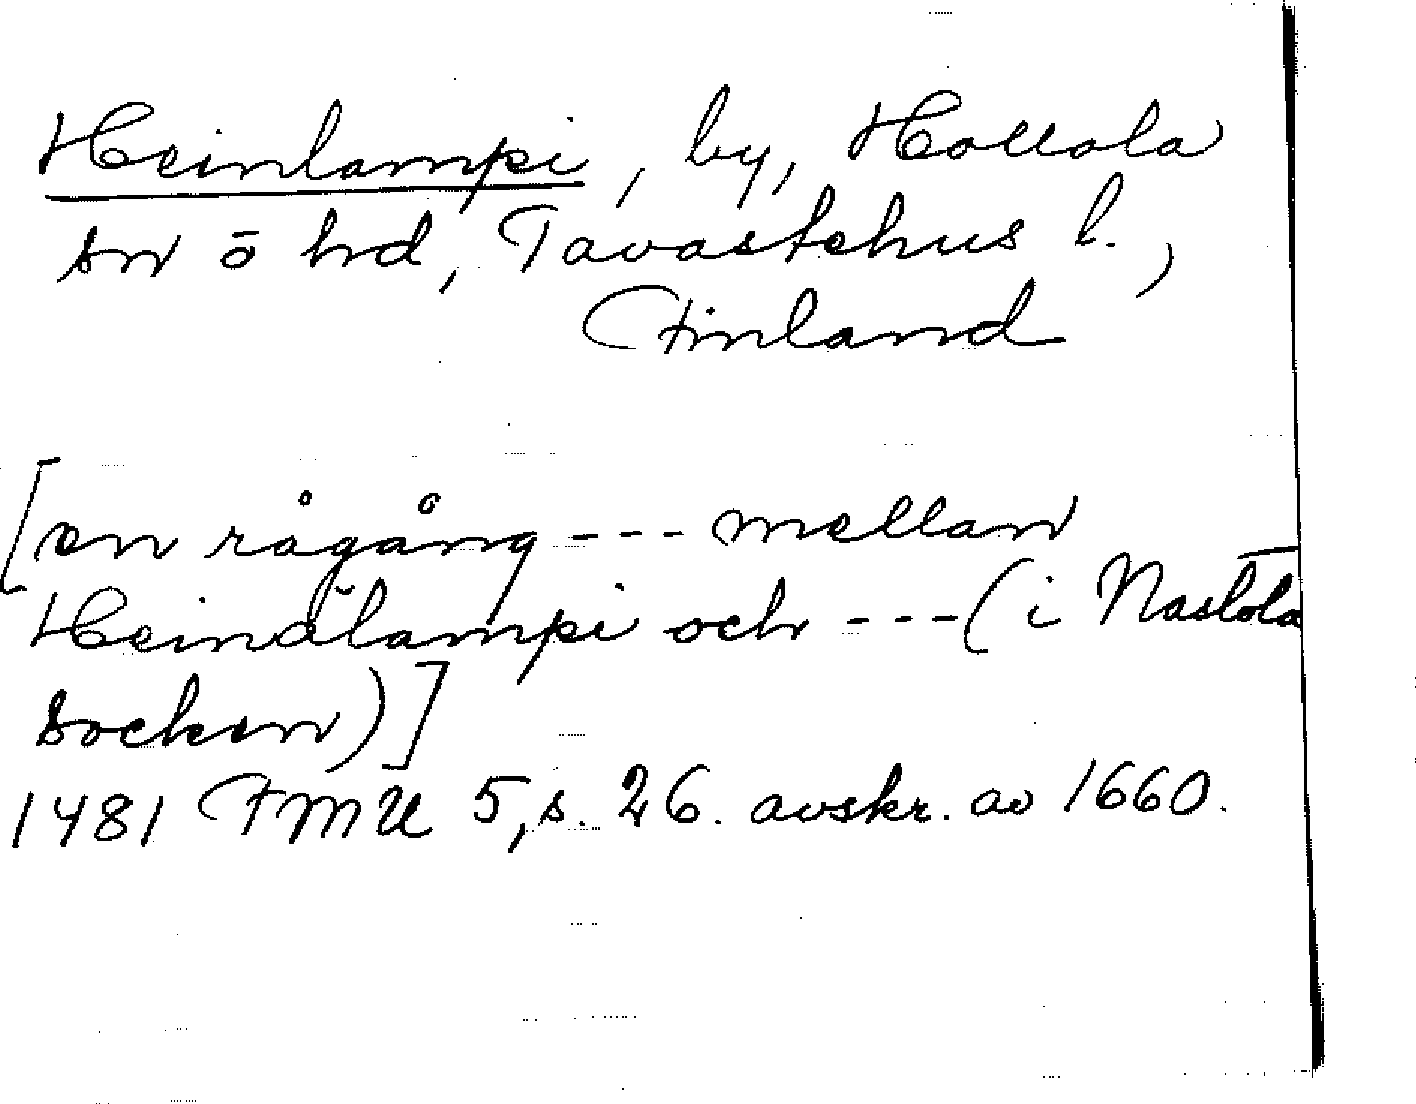 Heinlampi, by, Hollola
sn ō hd, Tavastehus l.,
Finland
[en rågång --- mellan
Heinälampi och --- (i Nastola
socken)]
1481 FMU 5, s. 26. avskr. av 1660.